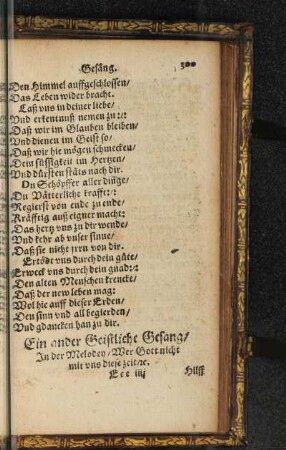 Gesäng. 300
Den Himmel auffgeschlossen/
Das Leben wider bracht.
Laß vns in deiner liebe/
Vnd erkentnuß nemen zu:/:
Daß wir im Glauben bleiben/
Vnd dienen im Geist so/
Daß wir hie mögen schmecken/
Dein süssigkeit im Hertzen/
Vnd dürsten stäts nach dir.
Du Schöpffer aller dinge/
Du Vätterliche krafft:/:
Regierst von ende zu ende/
Kräfftig auß eigner macht:
Das hertz vns zu dir wende/
Vnd kehr ab vnser sinne/
Daß sie nicht jrrn von dir.
Ertödt vns durch dein güte/
Erweck vns durch dein gnad:/:
Den alten Menschen krencke/
Daß der new leben mag:
Wol hie auff dieser Erden/
Den sinn vnd all begierden/
Vnd gdancken han zu dir.
Ein ander Geistliche Gesang/
In der Melodey/Wer Gott nicht
mit vns diese zeit/ꝛc.
Eee iiij Hilff